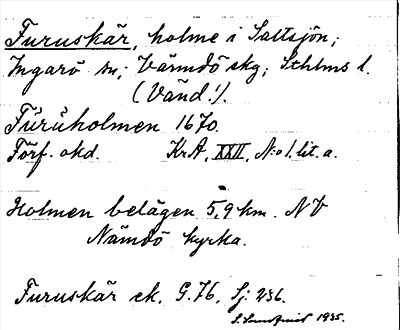 Furuskär, holme i Saltsjön;
Ingarö sn; Värmdö skg; Sthlms l.
(Vänd!).
Fŭrŭholmen 1670.
Förf. okd. KrA, XXII, N:o 1. lit. a.
Holmen belägen 5,9 km. NV
Nämdö kyrka.
Furuskär ek. G.76, Sj: 236.
S. 1935.